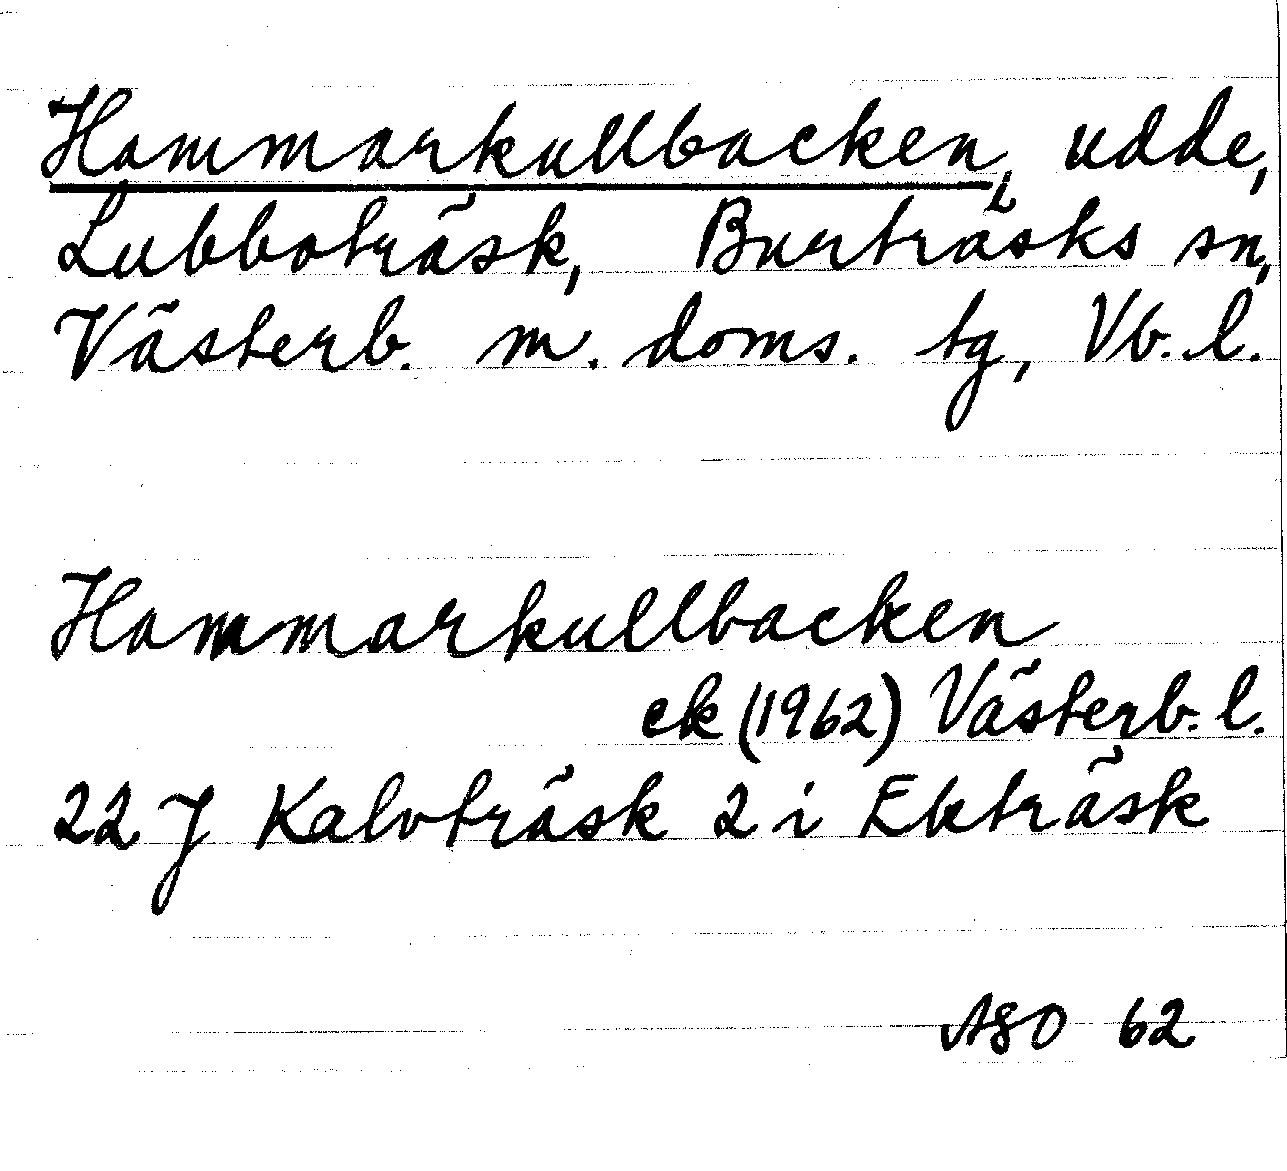 Hammarkullbacken, udde, i
Lubboträsk, Burträsks sn,
Västerb. m. doms. tg, Vb. l.
Hammarkullbacken
ek (1962) Västerb. l.
22 J Kalvträsk 2 i Ekträsk
ASO 62